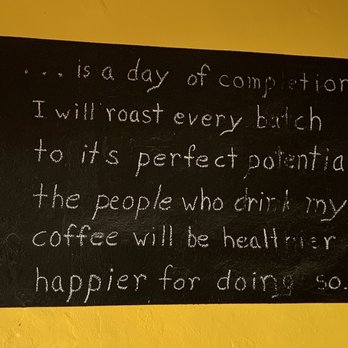 ... is a day of completion
I will roast every batch
to its perfect potentia
the people who drink my
coffee will be healthier
happier for doing so.